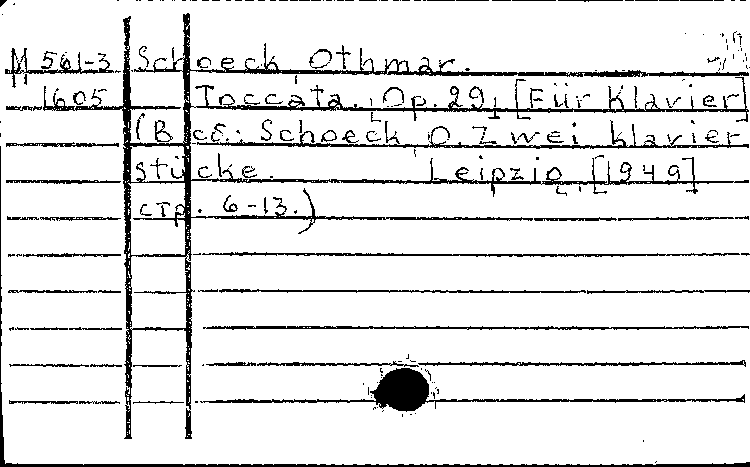 M 561-3 Schoeck, Othmar.
1605 Toccata. Op. 29. [Für Klavier]
(В сб.: Schoeck, O. Zwei Klavier
stücke. Leipzig, [1949]
стр. 6-13.)